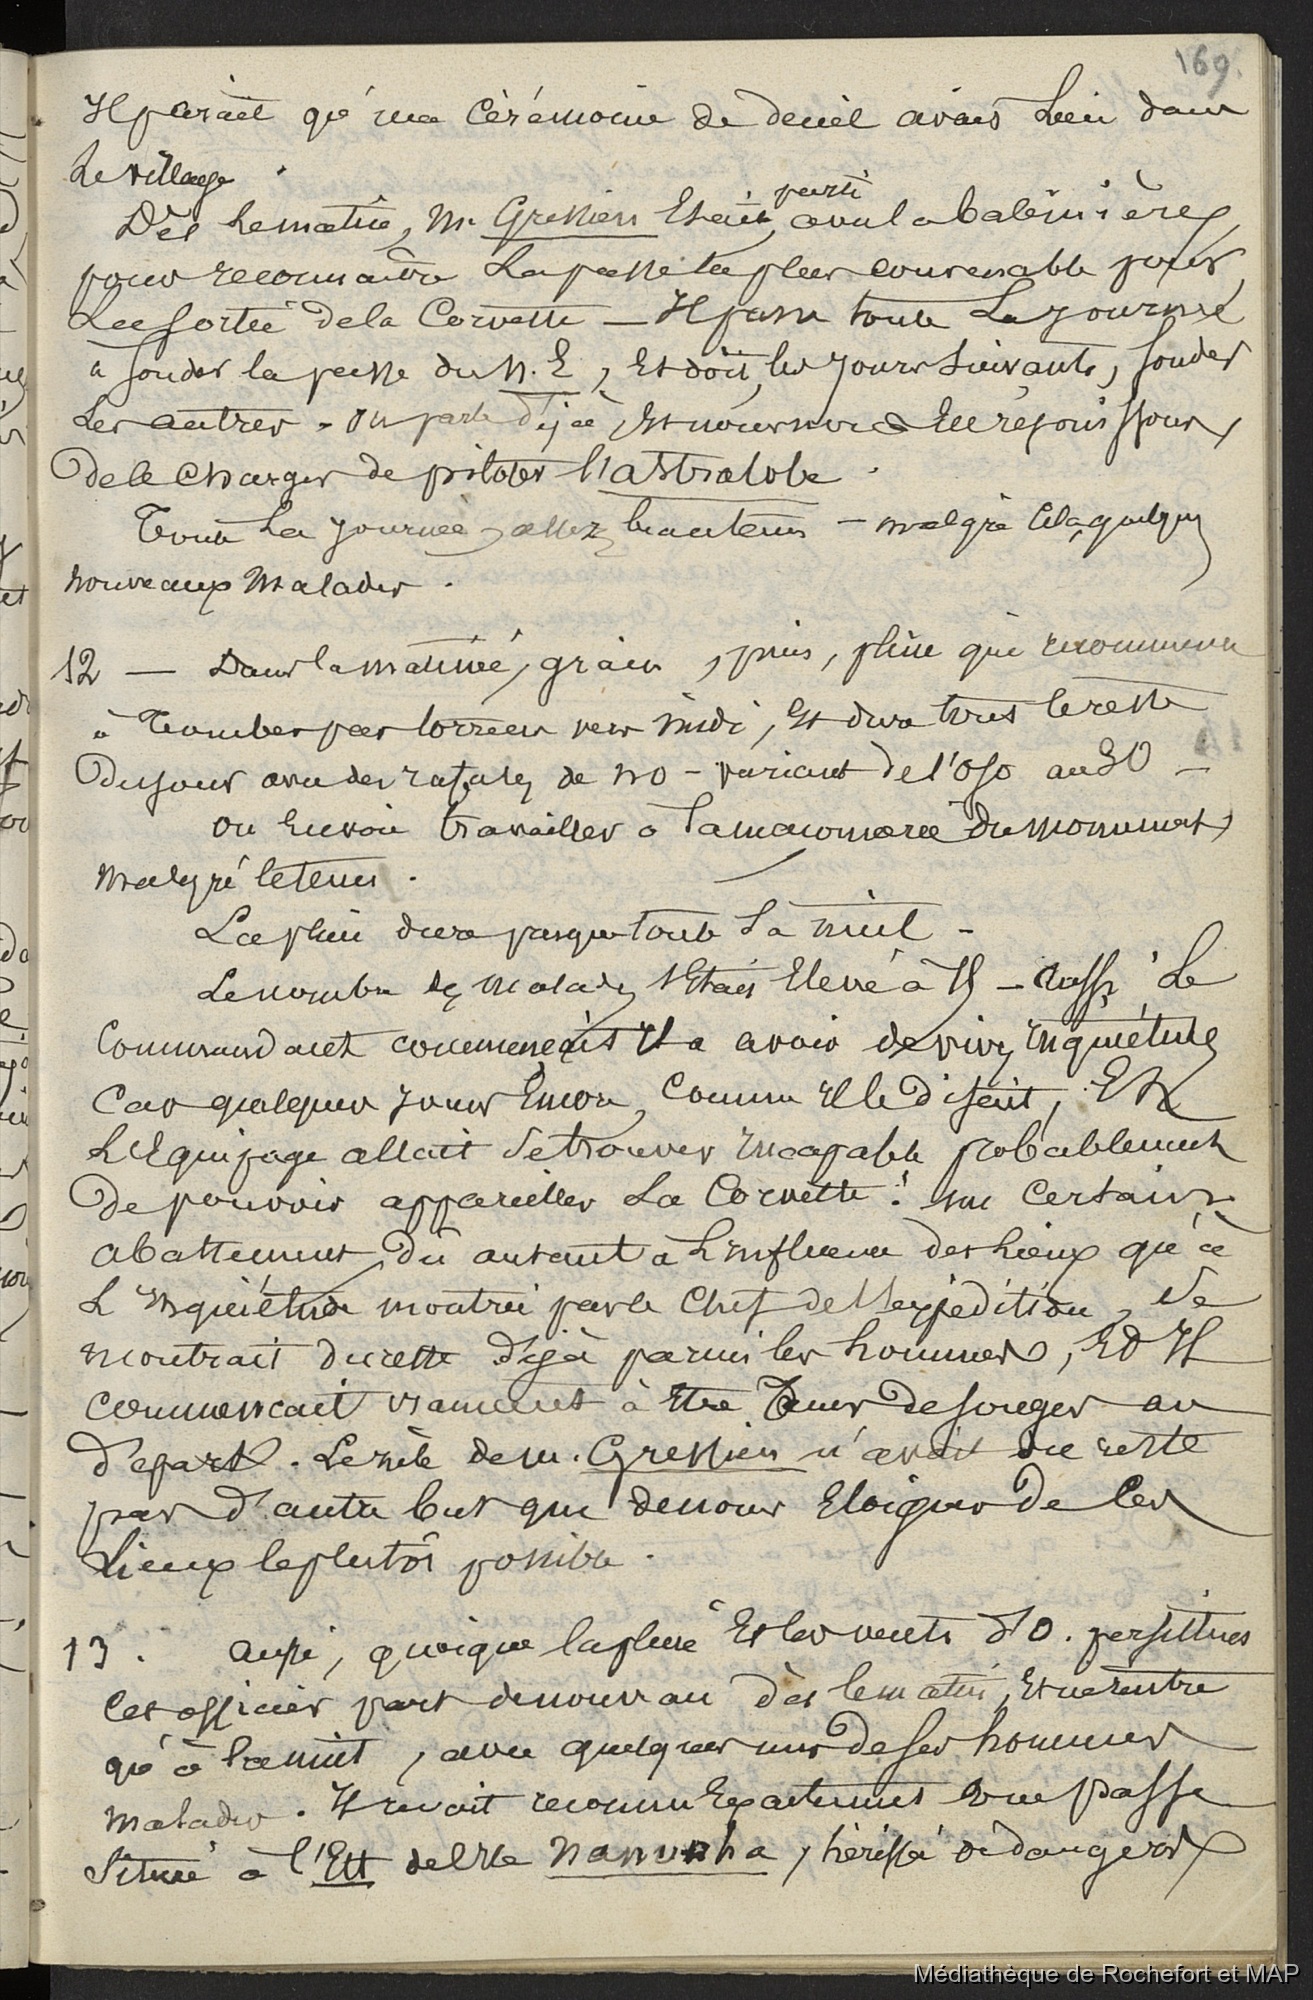 169.
Il parait qu'une cérémonie de deuil avait lieu dans
le village.
Dès le matin, M. Gressien était parti avec la baleinière,
pour reconnaître la passe la plus convenable pour
la sortie de la Corvette — Il passa toute la journée
à sonder la passe du N.E, et doit, les jours suivants, sonder
les autres - on parle déjà, et nous nous en réjouissons,
de le charger de piloter l'astrolabe.
Toute la journée, assez beau tems - malgré cela, quelques
nouveaux malades.
12 — Dans la matinée, grain, puis, pluie qui recommence
à tomber par torrens vers midi, et dura tout le reste
du jour avec des rafales de NO - variant de l'OSO au SO —
On envoie travailler à la maçonnerie du monument,
malgré le tems.
La pluie dura presque toute la nuit -
Le nombre des malades s'était élevé à - Aussi le
Commandant commençait il a avoir de vives inquiétudes
Car quelques jours encore, comme il le disait, et
l'équipage allait se trouver incapable probablement
de pouvoir appareiller la Corvette! un certain
abattement, dû autant à l'influence des lieux qu'à
l'inquiétude montrée par le chef de l'expédition, se
montrait du reste déjà parmi les hommes, et il
commencait vraiment à être tems de songer au
départ. Le zèle de M. Gressien n'avait du reste
pas d'autre but que de nous éloigner de ces
lieux le plutôt possible.
13. Aussi, quoique la pluie et les vents d'O. persistives
cet officier part de nouveau dès le matin, et ne rentre
qu'à la nuit, avec quelques uns de ses hommes
malades. Il avait reconnu exactement une passe
située à l'Est de l'île Nanunha, hérissée de dangers
Médiathèque de Rochefort et MAP